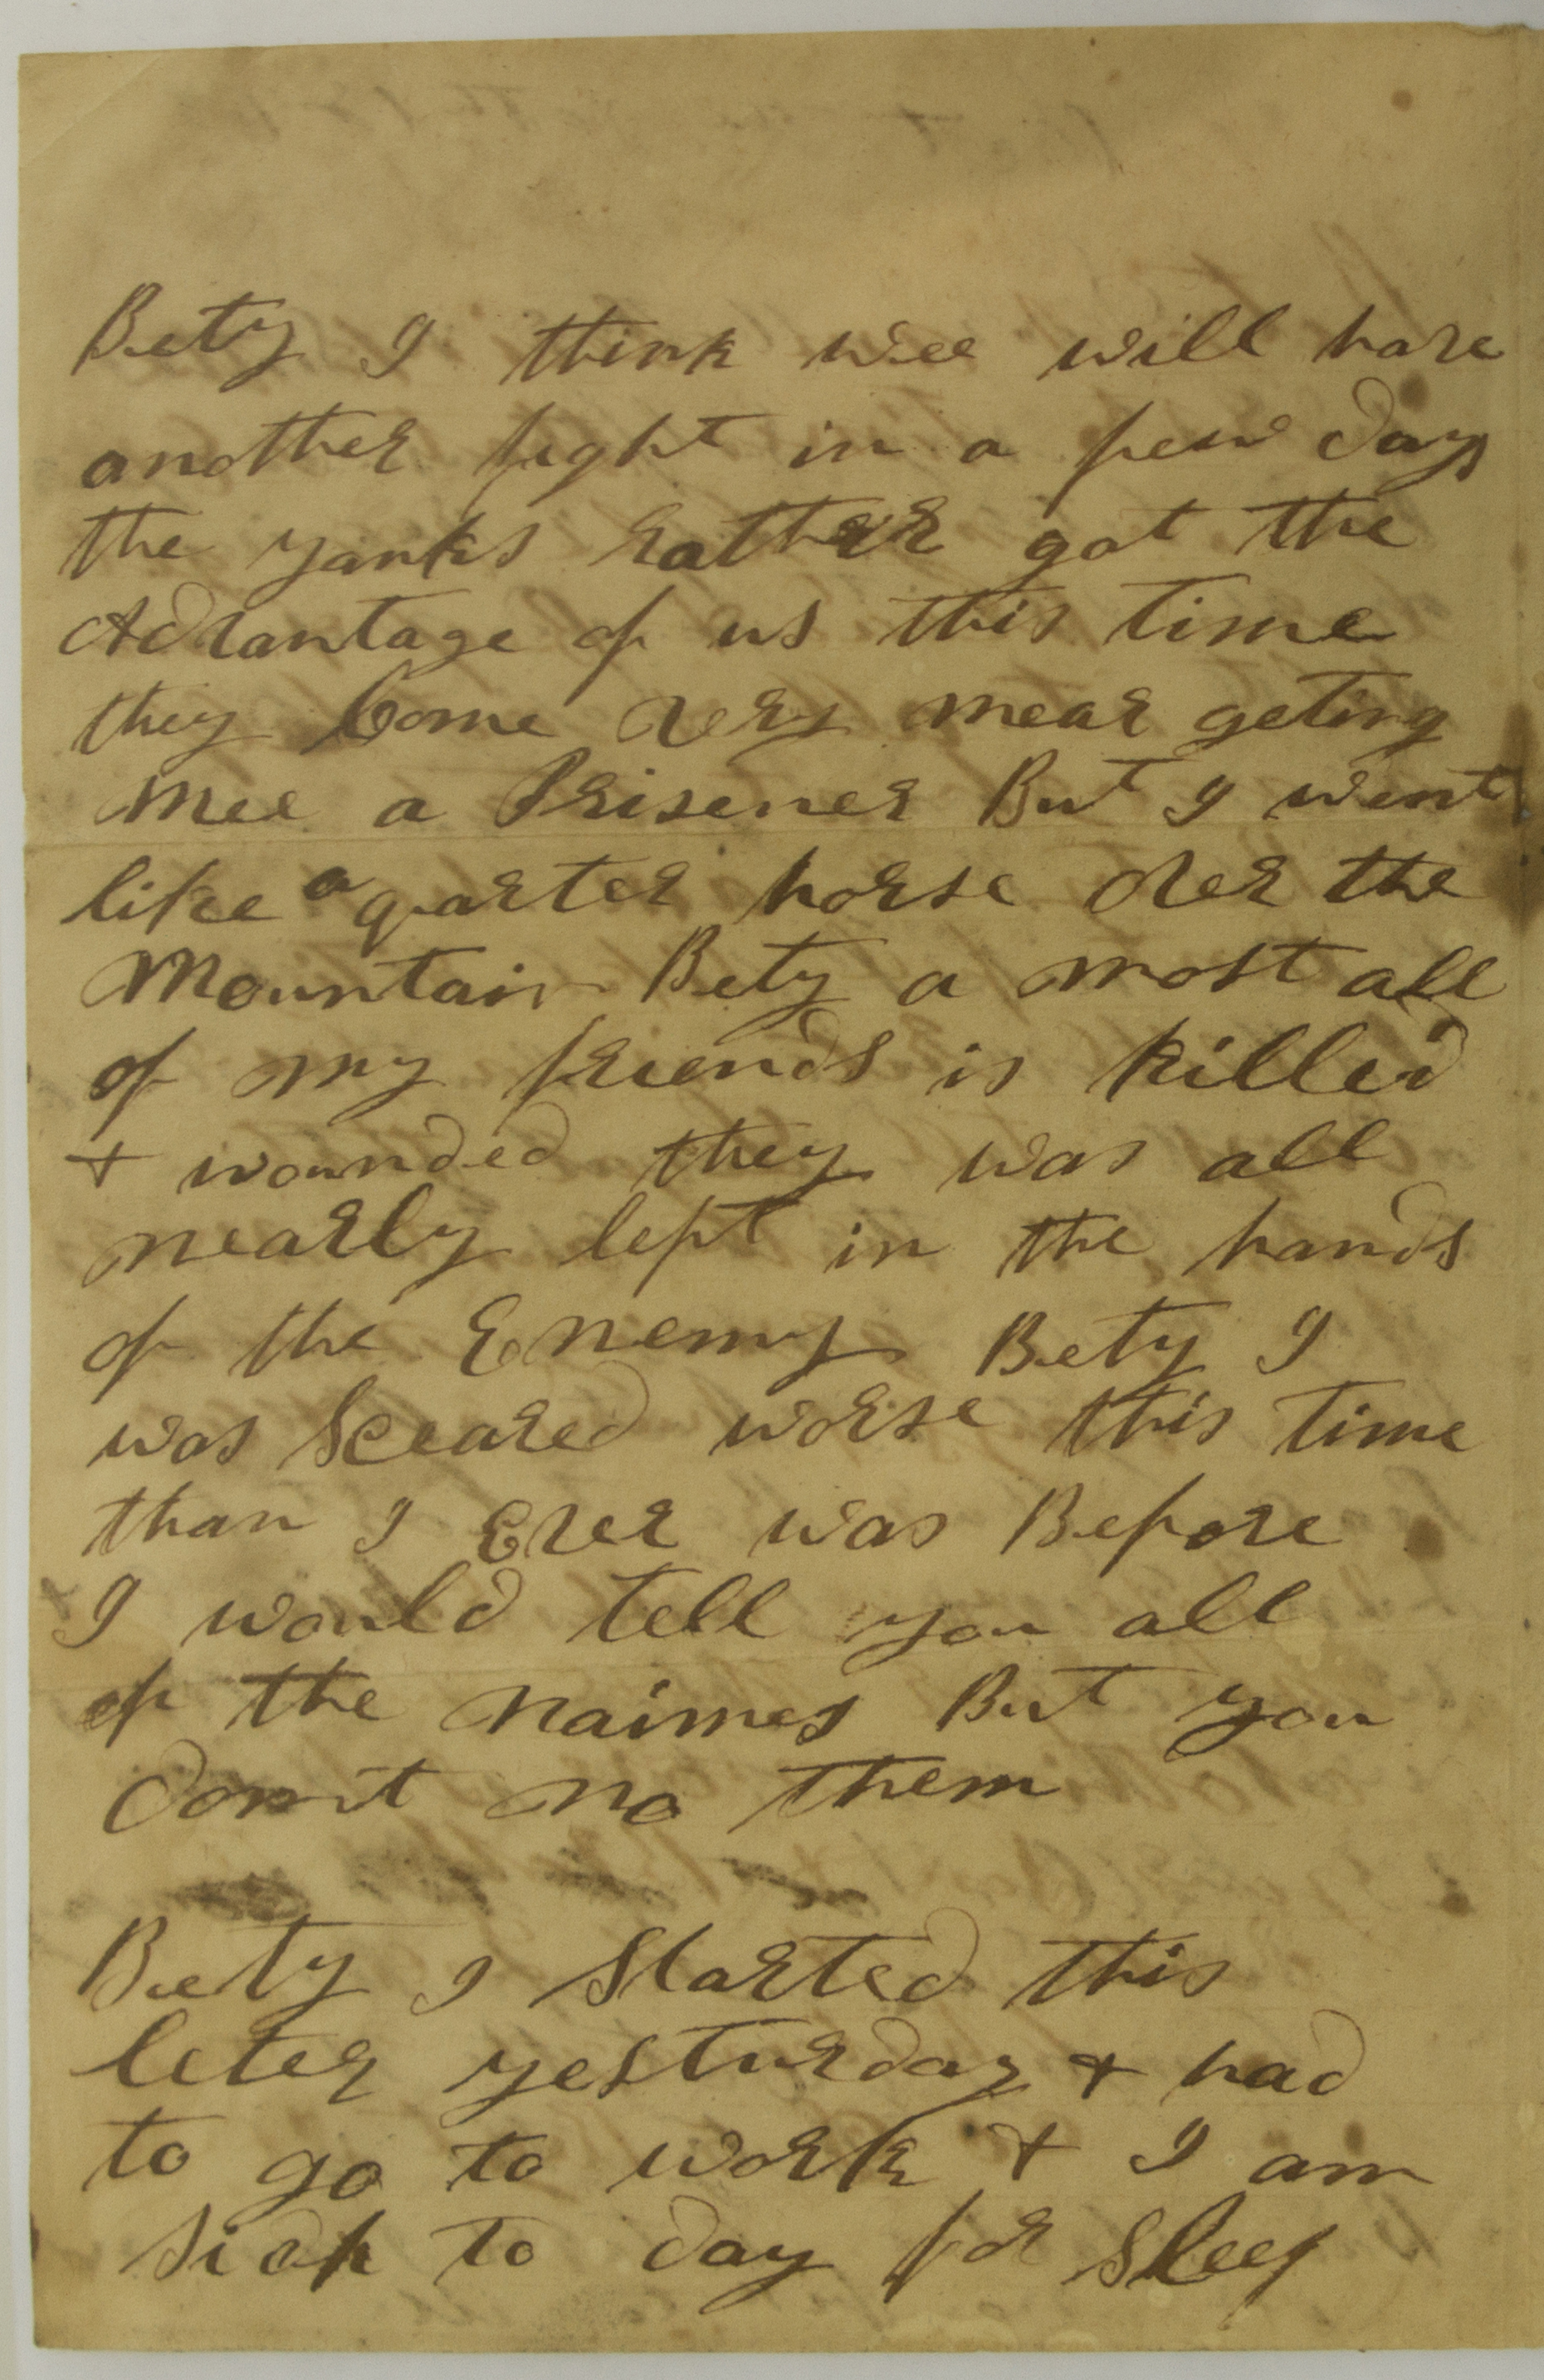 Bety I think wee will have
another fight in a few days
the yanks rather got the
Advantage of us this time
they Come very near geting
mee a Prisener But I went
like a quarter horse over the
Mountain Bety a most all
of my friends is killed
+ wounded they was all
nearly left in the hands
of the Enemy Bety I
was Sceared worse this time
than I Ever was Before
I would tell you all
of the naimes But you
dont no them
Bety I Started this
leter yesturday + had
to go to work + I am
Sick to day for Sleep